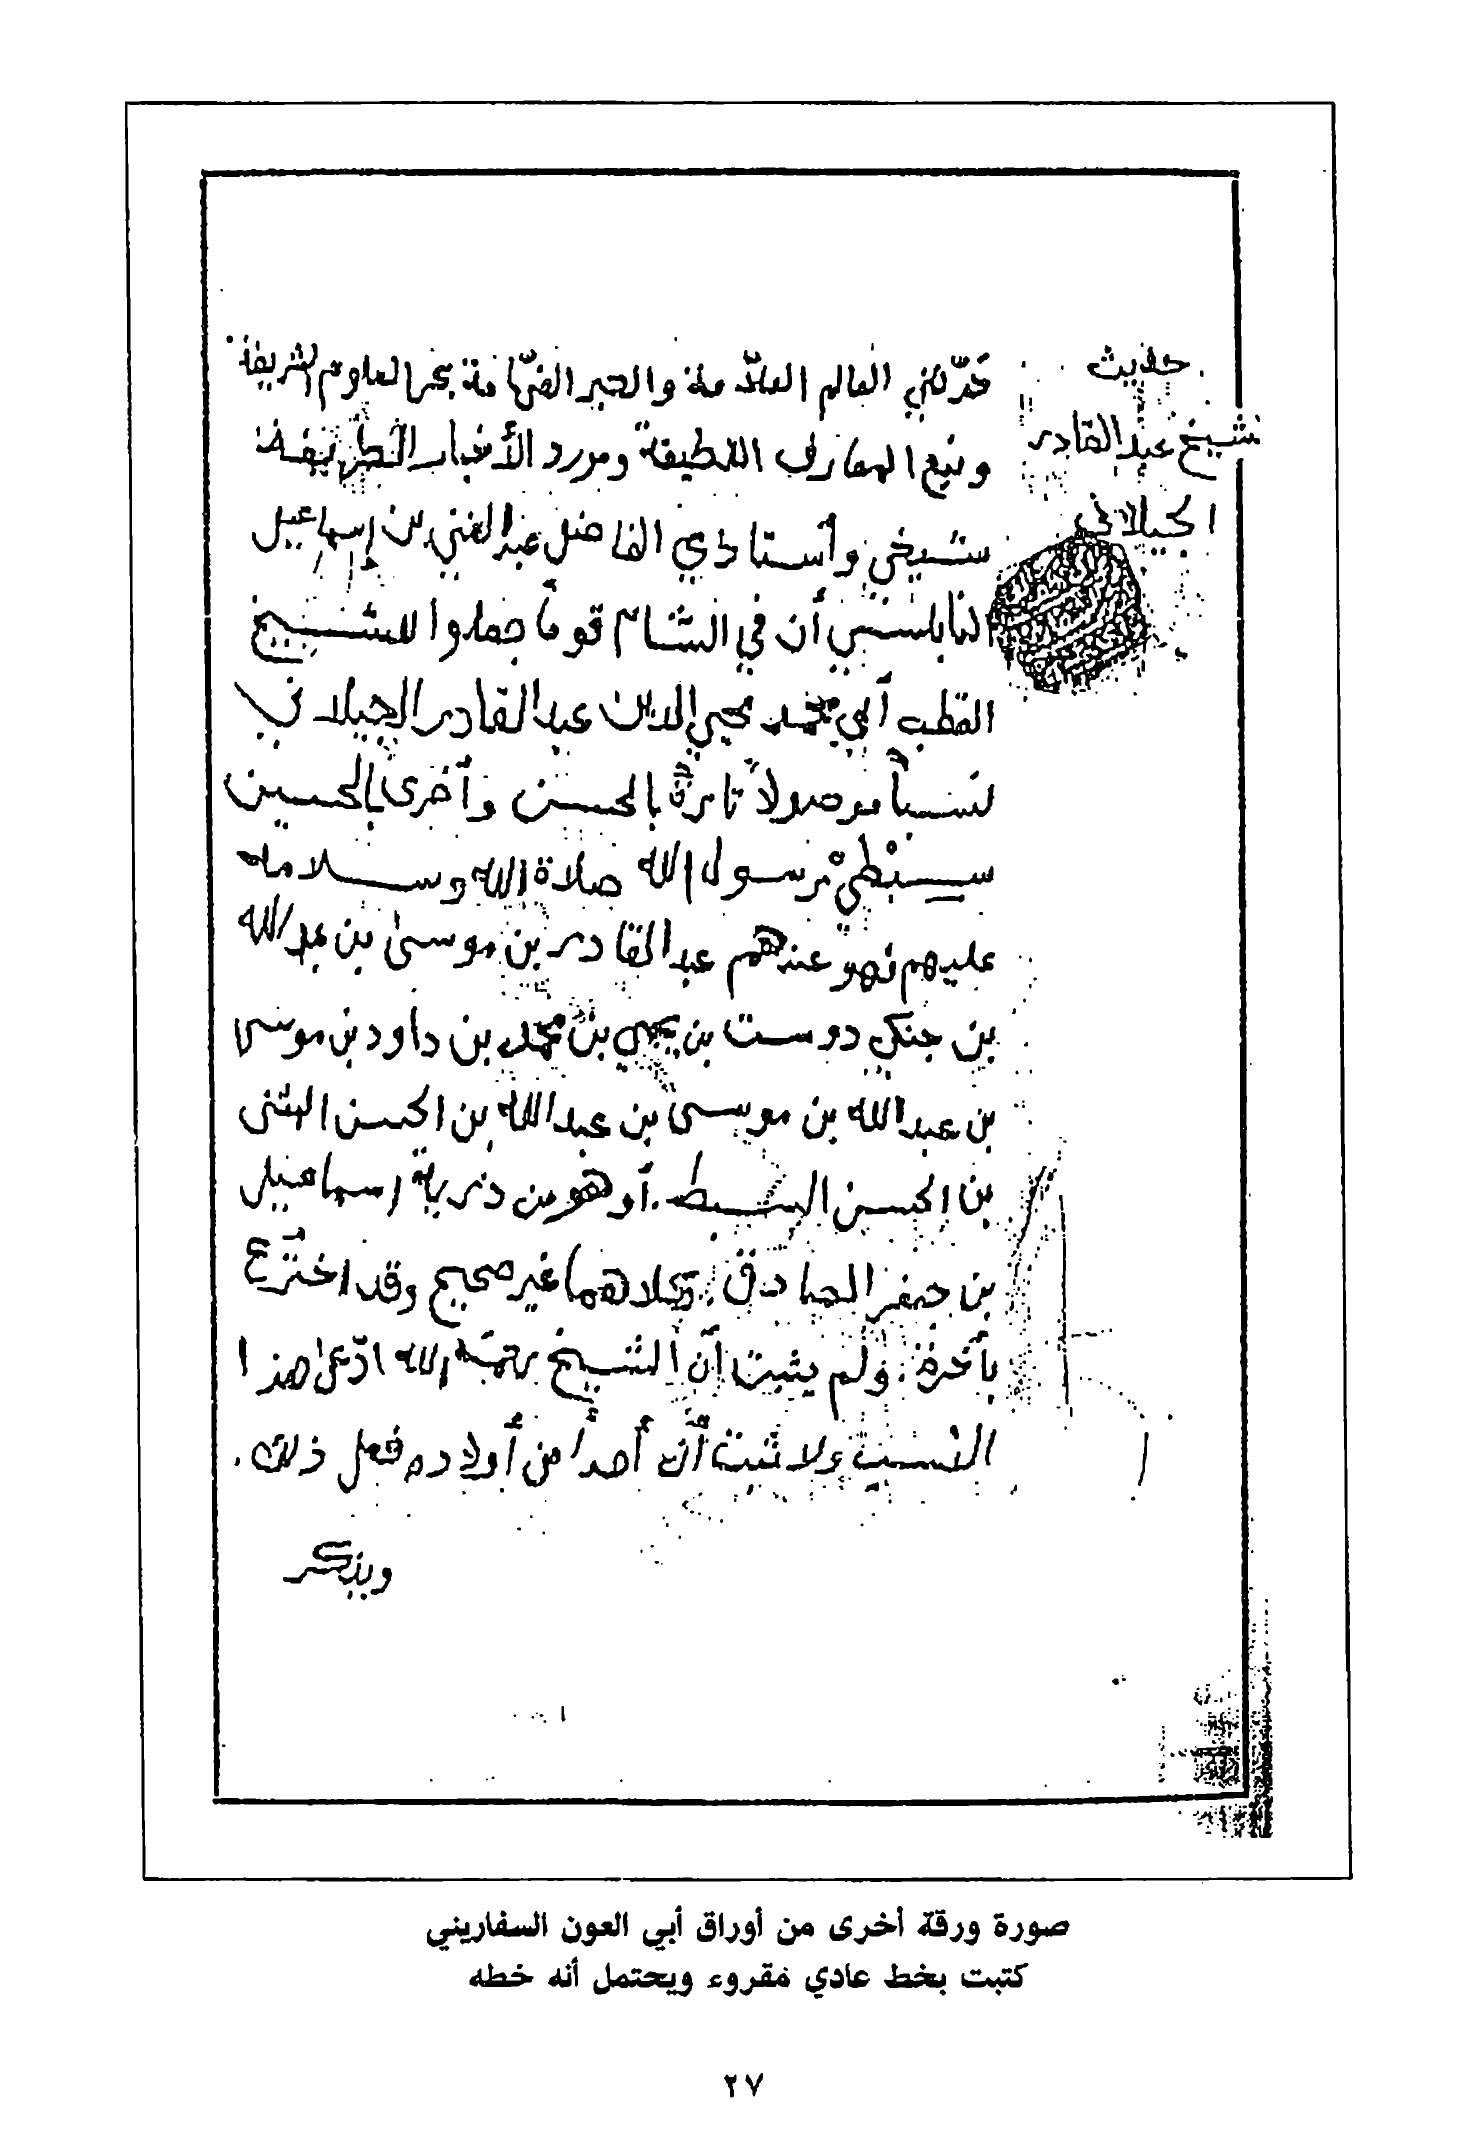 حديث
شيخ عبد القادر
الجيلاني
حدّثني العالم العلّامة والحبر الفهّامة بحر العلوم الشريفة
ونبع المعارف اللطيفة ومورد الأخبار الطريفة
شيخي وأستاذي الفاضل عبد الغني بن إسماعيل
النابلسي أن في الشام قوماً جعلوا للشيخ
القطب أبي محمد محيي الدين عبد القادر الجيلاني
نسباً موصولاً تارةً بالحسن وأخرى بالحسين
سبْطيْ رسول الله صلاة الله وسلامه
عليهم فهو عندهم عبد القادر بن موسى بن عبد الله
بن جنكي دوست بن يحيى بن محمد بن داود بن موسى
بن عبد الله بن موسى بن عبد الله بن الحسن المثنى
بن الحسن السبط. أو هو من ذرية إسماعيل
بن جعفر الصادق. وكلاهما غير صحيح وقد اختُرع
بآخرة. ولم يثبت أن الشيخ رحمه الله ادّعى هذا
النسب ولا ثبت أنّ أحداً من أولاده فعل ذلك.
ويذكر
صورة ورقة أخرى من أوراق أبي العون السفاريني
كتبت بخط عادي مقروء ويحتمل أنه خطه
٢٧